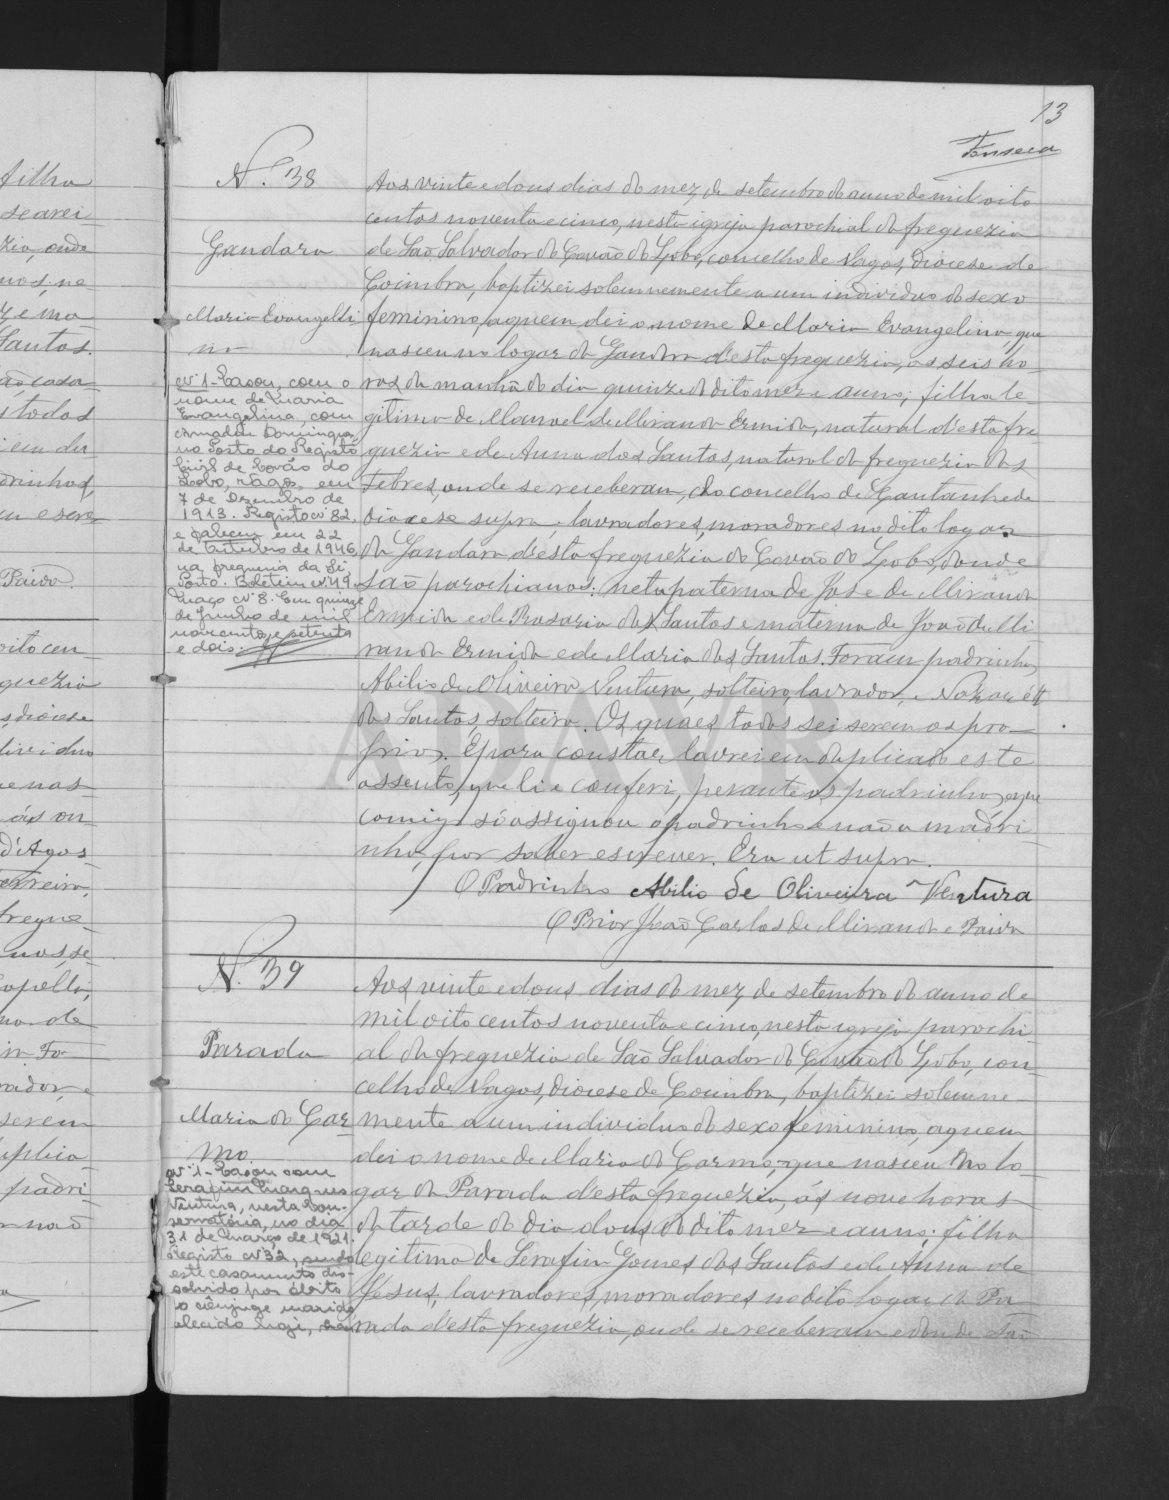 13
Fonseca
N.º 38
Gandara
Maria Evangeli
na
Aos vinte e dous dias do mez de setembro do anno de mil oito
centos noventa e cinco, nesta igreja parochial da freguezia
de São Salvador do Covão do Lobo, concelho de Vagos, diocese de
Coimbra, baptizei solemnemente a um individuo do sexo
feminino, a quem dei o nome de Maria Evangelina, que
nasceu no logar da Gandara d'esta freguezia, as seis ho-
ras da manhã do dia quinze do dito mez e anno, filha le
gitima de Manoel de Miranda Ermida, natural d'esta fre
guezia e de Anna dos Santos, natural da freguezia das
Febres, onde se receberam, do concelho de Cantanhede
diocese supra, lavradores, moradores no dito logar
da Gandara d'esta freguezia do Covão do Lobo, donde
são parochianos: neta paterna de José de Miranda
Ermida e de Rosaria dos Santos e materna de João de Mi
randa Ermida e de Maria dos Santos. Foram padrinhos
Abilio de Oliveira Ventura, solteiro, lavrador, e Nazareth
dos Santos, solteira. Os quaes todos sei serem os pro-
prios. E para constar lavrei em duplicado este
assento, que li e conferi, perante os padrinhos, e que
comigo só assignou o padrinho e não a madri
nha, por saber escrever. Era ut supra.
O Padrinho Abilio de Oliveira Ventura
O Prior João Carlos de Miranda e Paiva
Nº 1 - Casou, com o
nome de Maria
Evangelina, com
Domingues,
no Posto do Registo
Civil de Covão do
Lobo, Vagos, em
7 de Dezembro de
1913. Registo nº 82.
e faleceu em 22
de Outubro de 1946,
na freguesia da Sé,
Porto. Boletim nº 49.
Maço nº 8. Em quinze
de Junho de mil
novecentos e setenta
e dois.
N. 39
Parada
Maria do Car-
mo.
Aos vinte e dous dias do mez de setembro do anno de
mil oito centos noventa e cinco, nesta igreja parochi-
al da freguezia de São Salvador do Covão do Lobo, con-
celho de Vagos, diocese de Coimbra, baptizei solemne-
mente a um individuo do sexo feminino, a quem
dei o nome de Maria do Carmo, que nasceu no lo-
gar da Parada d'esta freguezia, ás nove horas
da tarde do dia dous do dito mez e anno; filha
legitima de Serafim Gomes dos Santos e de Anna de
Jésus, lavradores, moradores no dito logar da Pa
rada d'esta freguezia, onde se receberam e donde são
Nº 1 - Casou com
Serafim Marques
Ventura, nesta Con-
servatória, no dia
31 de Março de 1921.
Registo nº 32, sendo
este casamento dis-
solvido por óbito
do cônjuge marido
falecido hoje,
filha
se arei
onde
Santos.
casa
todos
padrinhos,
e escre
Paiva
oito cen-
guezia
diocese
dividuo
e nas-
ás on
d'Agos-
Ferreira,
fregue-
Capella,
no de
serem
uplica-
padri-
não
ADAVR